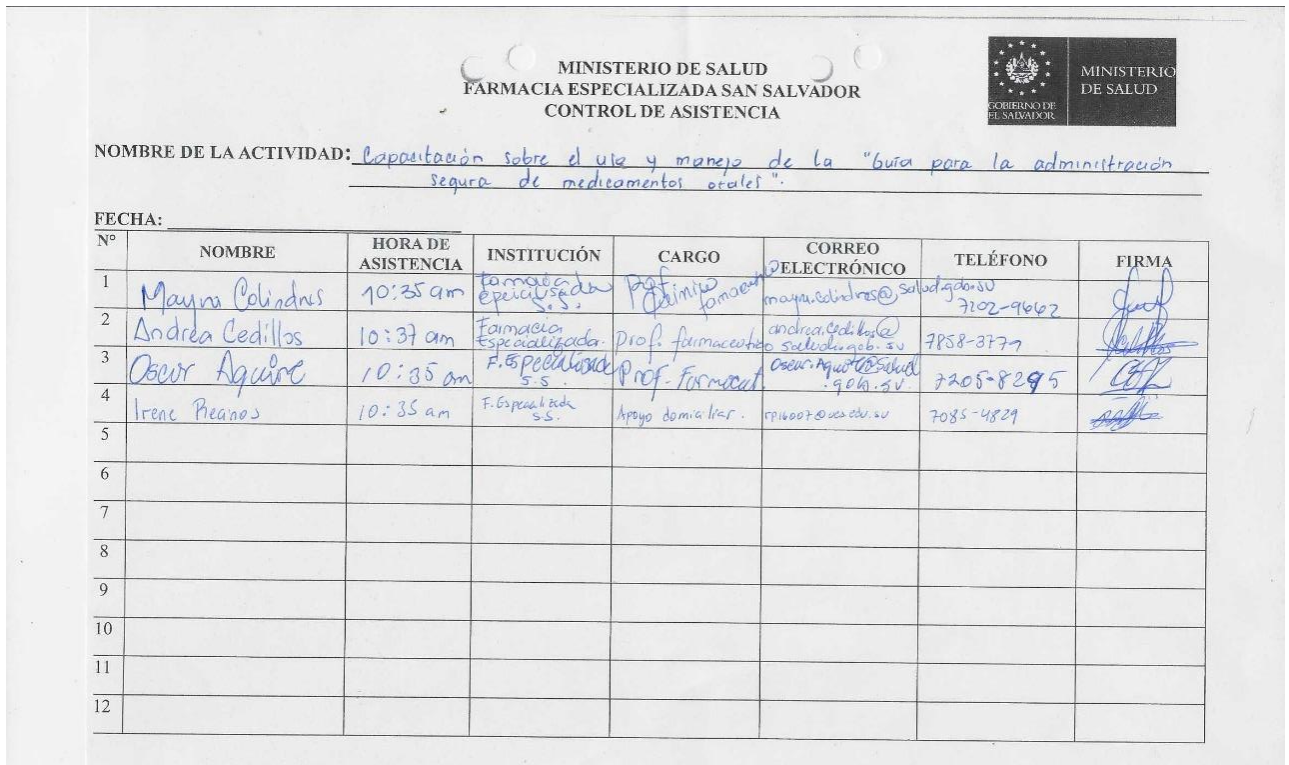 MINISTERIO DE SALUD
FARMACIA ESPECIALIZADA SAN SALVADOR
CONTROL DE ASISTENCIA
GOBIERNO DE
EL SALVADOR
MINISTERIO
DE SALUD
NOMBRE DE LA ACTIVIDAD: Capacitación sobre el uso y manejo de la "Guía para la administración
segura de medicamentos orales".
FECHA:
N° NOMBRE HORA DE ASISTENCIA INSTITUCIÓN CARGO CORREO ELECTRÓNICO TELÉFONO FIRMA
1 Mayra Colindres 10:35 am Farmacia S.S. Prof. Químico 7202-9662
2 Andrea Cedillos 10:37 am Farmacia Especializada. Prof. farmaceutico andrea.cedillos@salud.gob.sv 7858-3779
3 Oscar Aguirre 10:35 am F. Especializada S.S. Prof. 7205-8295
4 Irene 10:35 am F. Especializada S.S. Apoyo domiciliar. rp16007@ues.edu.sv 7085-4829
5
6
7
8
9
10
11
12